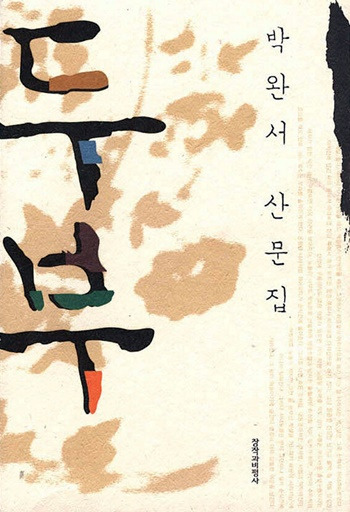 두부
박완서 산문집
창작과비평사